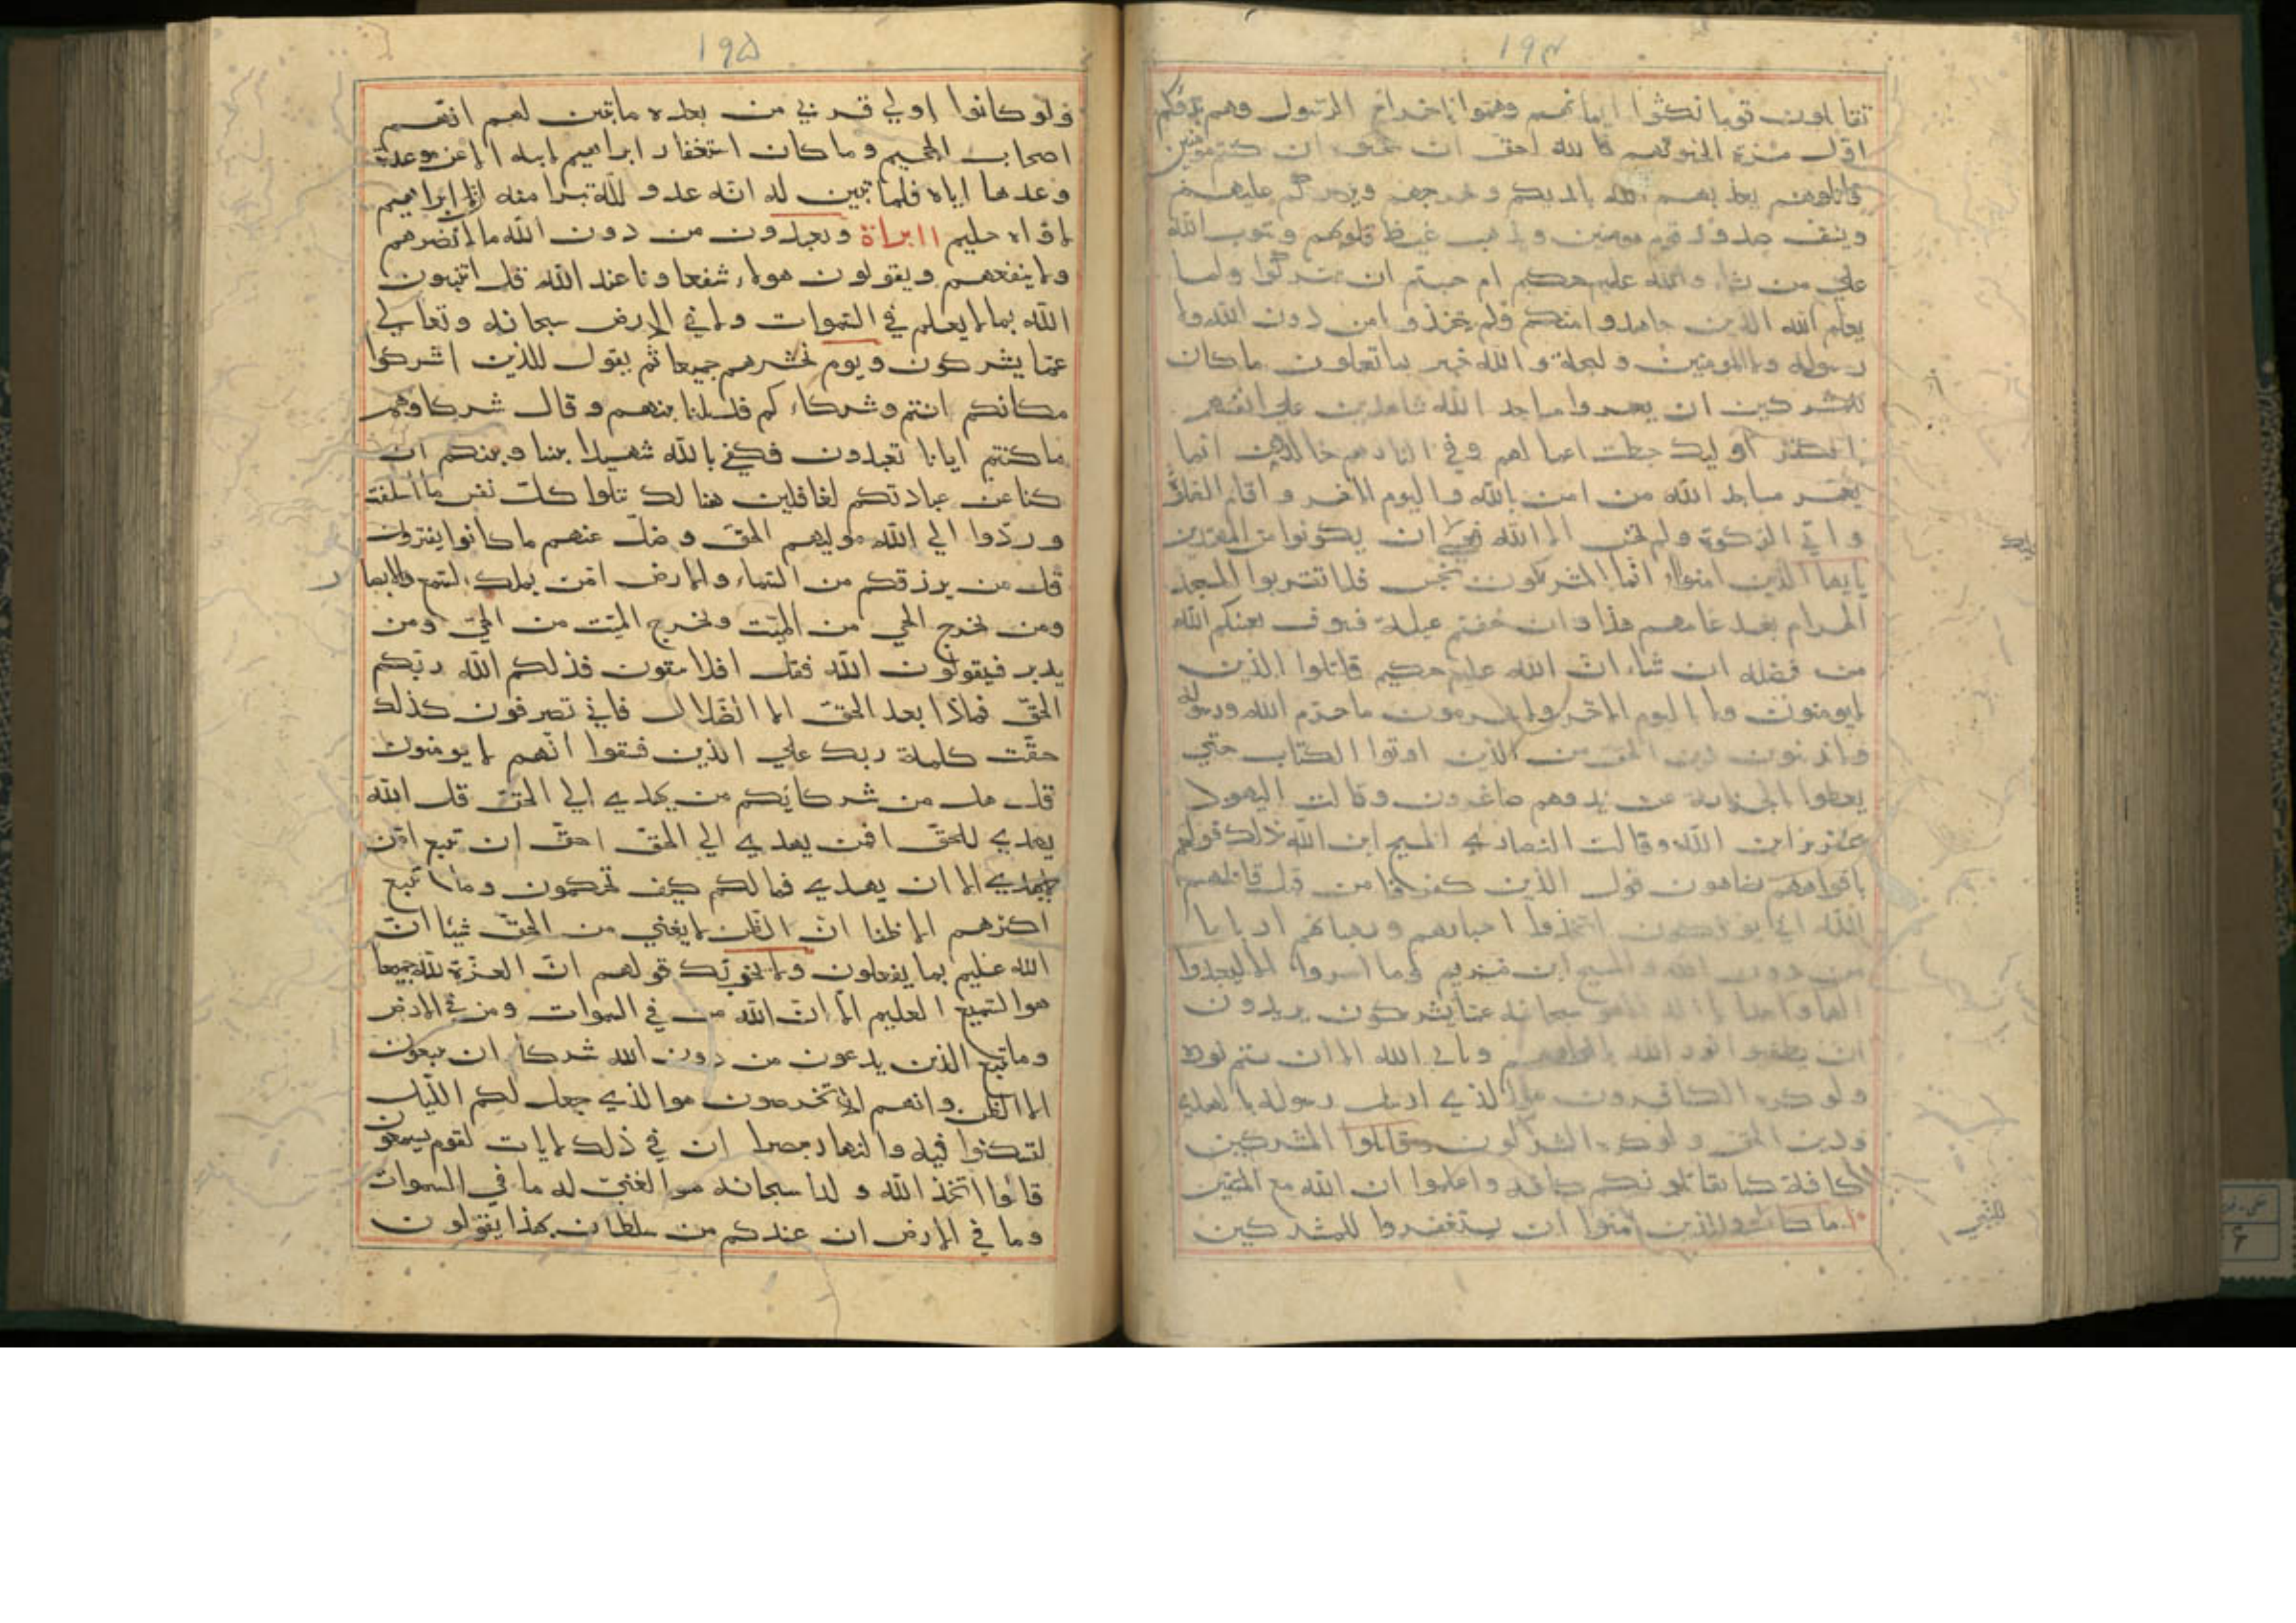 ١٩٤
تقاتلون قوما نكثوا ايمانهم وهموا باخراج الرسول وهم بدوكم
اول مرة اتخشونهم فالله احق ان تخشوه ان كنتم مومنين
قاتلوهم يعذبهم الله بايديكم و يخزهم وينصركم عليهم
ويشف صدور قوم مومنين ويذهب غيظ قلوبهم ويتوب الله
علي من يشاء والله عليم حكيم ام حسبتم ان تتركوا ولما
يعلم الله الذين جاهدوا منكم ولم يتخذوا من دون الله ولا
رسوله ولا المومنين وليجة و الله خبير بما تعملون ما كان
للمشركين ان يعمروا مساجد الله شاهدين علي انفسهم
بالكفر اوليك حبطت اعمالهم وفي النار هم خالدون انما
يعمر مساجد الله من امن بالله واليوم الاخر و اقام الصلوة
و اتي الزكوة ولم يخش الا الله فعسي ان يكونوا من المهتدين
يايها الذين امنوا انما المشركون نجس فلا تقربوا المسجد
الحرام بعد عامهم هذا وان خفتم عيلة فسوف يغنيكم الله
من فضله ان شاء ان الله عليم حكيم قاتلوا الذين
لايومنون ولا اليوم الاخر ولا يحرمون ما حرم الله ورسوله
ولا يدينون دين الحق من الذين اوتوا الكتاب حتي
يعطوا الجزية عن يد وهم صاغرون وقالت اليهود
عزير ابن الله وقالت النصاري المسيح ابن الله ذلك قولهم
بافواههم يضاهون قول الذين كفروا من قبل قاتلهم
الله اني يوفكون اتخذوا احبارهم ورهبانهم اربابا
من دون الله والمسيح ابن مريم وما امروا الا ليعبدوا
الها واحدا لا اله الا هو سبحانه عما يشركون يريدون
ان يطفيوا نور الله بافواههم و يابي الله الا ان يتم نوره
ولو كره الكافرون هو الذي ارسل رسوله بالهدي
ودين الحق ولو كره المشركون وقاتلوا المشركين
كافة كما يقاتلونكم كافة واعلموا ان الله مع المتقين
ما كان والذين امنوا ان يستغفروا للمشركين
للنبي
١٩۵
ولو كانوا اولي قربي من بعد ما تبين لهم انهم
اصحاب الجحيم و ما كان استغفار ابراهيم لابيه الا عن موعدة
وعدها اياه فلما تبين له انه عدو لله تبرا منه ان ابراهيم
لاواه حليم ١١ براة ويعبدون من دون الله ما لا يضرهم
ولا ينفعهم ويقولون هولاء شفعاونا عند الله قل اتنبون
الله بما لا يعلم في السموات ولا في الارض سبحانه وتعالي
عما يشركون ويوم نحشرهم جميعا ثم يقول للذين اشركوا
مكانكم انتم وشركاءكم فزيلنا بينهم وقال شركاوهم
ما كنتم ايانا تعبدون فكفي بالله شهيدا بيننا وبينكم ان
كنا عن عبادتكم لغافلين هنا لك تتلوا كل نفس ما اسلفت
وردوا الي الله موليهم الحق وضل عنهم ما كانوا يفترون
قل من يرزقكم من السماء والارض امن يملك السمع والابصار
ومن يخرج الحي من الميت ويخرج الميت من الحي ومن
يدبر فيقولون الله فقل افلا تتقون فذلكم الله ربكم
الحق فماذا بعد الحق الا الضلال فاني تصرفون كذلك
حقت كلمة ربك علي الذين فسقوا انهم لا يومنون
قل هل من شركايكم من يهدي الي الحق قل الله
يهدي للحق افمن يهدي الي الحق احق ان يتبع امن
لايهدي الا ان يهدي فمالكم كيف تحكمون وما يتبع
اكثرهم الا ظنا ان الظن لا يغني من الحق شيئا ان
الله عليم بما يفعلون ولا يحزنك قولهم ان العزة لله جميعا
هو السميع العليم الا ان لله من في السموات ومن في الارض
وما يتبع الذين يدعون من دون الله شركاء ان يتبعون
الا الظن وانهم الا يخرصون هو الذي جعل لكم الليل
لتسكنوا فيه والنهار مبصرا ان في ذلك لايات لقوم يسمعون
قالوا اتخذ الله ولدا سبحانه هو الغني له ما في السموات
وما في الارض ان عندكم من سلطان بهذا يقولون